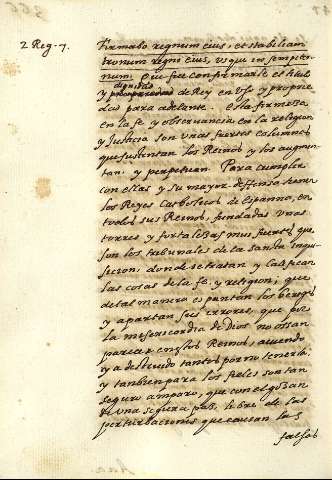 2 Reg. 7.
firmabo regnum eius, et stabiliam
tronum regni eius, usque in sempiter
num. que fue confirmarle el titulo
dignidad
y de Rey en uso y proprie
dad para adelante. esta firmeza
en la fe y observancia en la religion
y Justicia son unas fuertes columnas
que sustentan los Reinos y los augmen
tan, y perpetuan. Para cumplir
con ellas y su mayor deffensa tienen
los Reyes Catholicos de Espanna, en
todos sus Reinos, fundadas unas
torres y fortalezas mui fuertes que
son los tribunales de la Santa Inqui
sicion: donde se tratan y Califican
las cosas de la fe, y religion, que
de tal manera espantan los hereges
y apartan sus errores, que por
la misericordia de Dios no ossan
parecer en estos Reinos, aviendo
ya destruido tantos por no tenerla.
y tambien para los fieles son tan
seguro amparo, que con el gozan
de una segura paz, libre de las
perturbaciones que causan los
falsos